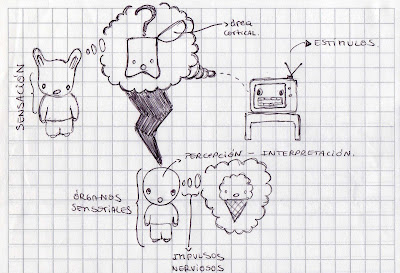 ?
área
cortical.
ESTIMULOS
SENSACIÓN
PERCEPCIÓN - INTERPRETACIÓN.
ÓRGANOS
SENSORIALES
IMPULSOS
NERVIOSOS